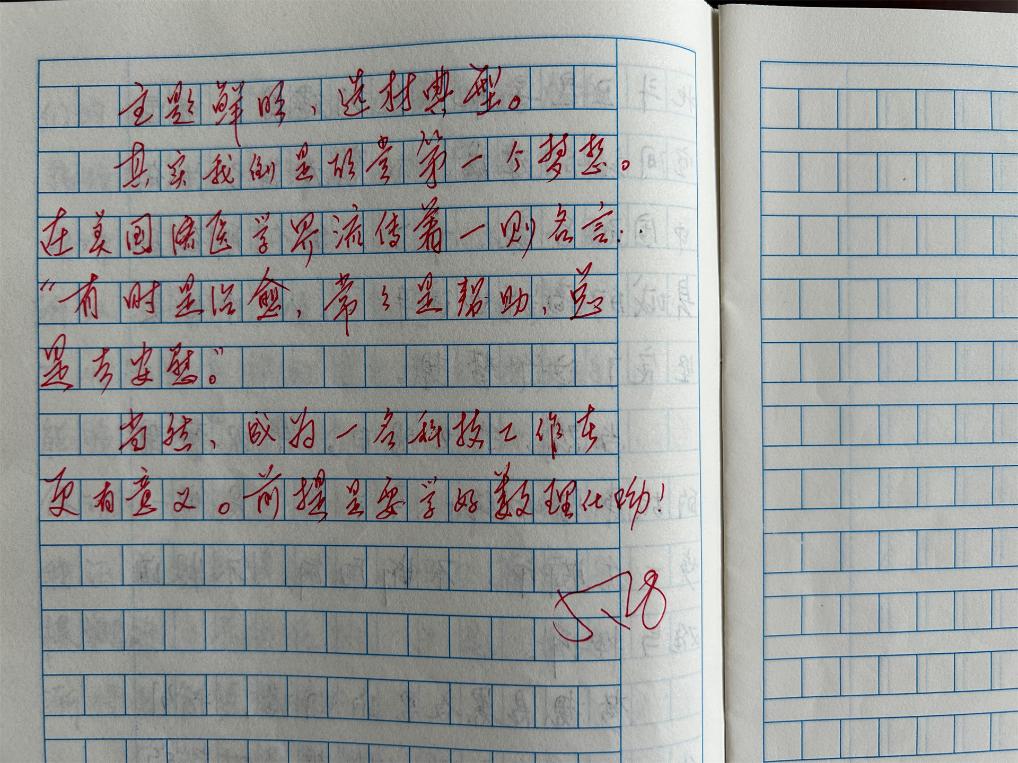 主题鲜明、选材典型。
其实我倒是欣赏第一个梦想。
在美国医学界流传着一则名言：
“有时是治愈、常々是帮助、总
是去安慰。”
当然、成为一名科技工作者
更有意义。前提是要学好数理化呦！
5.28